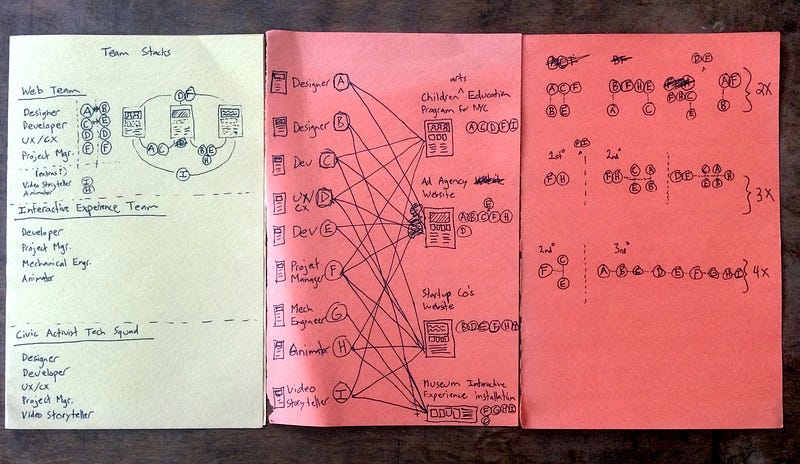 Team Stacks
Web Team
Designer A B
Developer C E
UX/CX D D
Project Mgr. F F
(extras?)
Video Storyteller I
Animator H
D F
A C
B E
H
I
Interactive Experience Team
Developer
Project Mgr.
Mechanical Engr.
Animator
Civic Activist Tech Squad
Designer
Developer
UX/CX
Project Mgr.
Video Storyteller
Designer A
Designer B
Dev C
UX/CX D
Dev E
Project Manager F
Mech Engineer G
Animator H
Video Storyteller I
arts
Children Education
Program for NYC
A C D F I
Ad Agency
Website
E
A B C F H
D
Startup Co's
Website
B D E F H I
Museum Interactive
Experience installation
F G H I
D E
A C F
B E
B F H E
A C
F H C
E
A F
B
2X
1st°
F H
2nd°
F H C A
E B
D F C A H
E B
3X
2nd°
F C
E
3rd°
A B C D E F G H I
4X